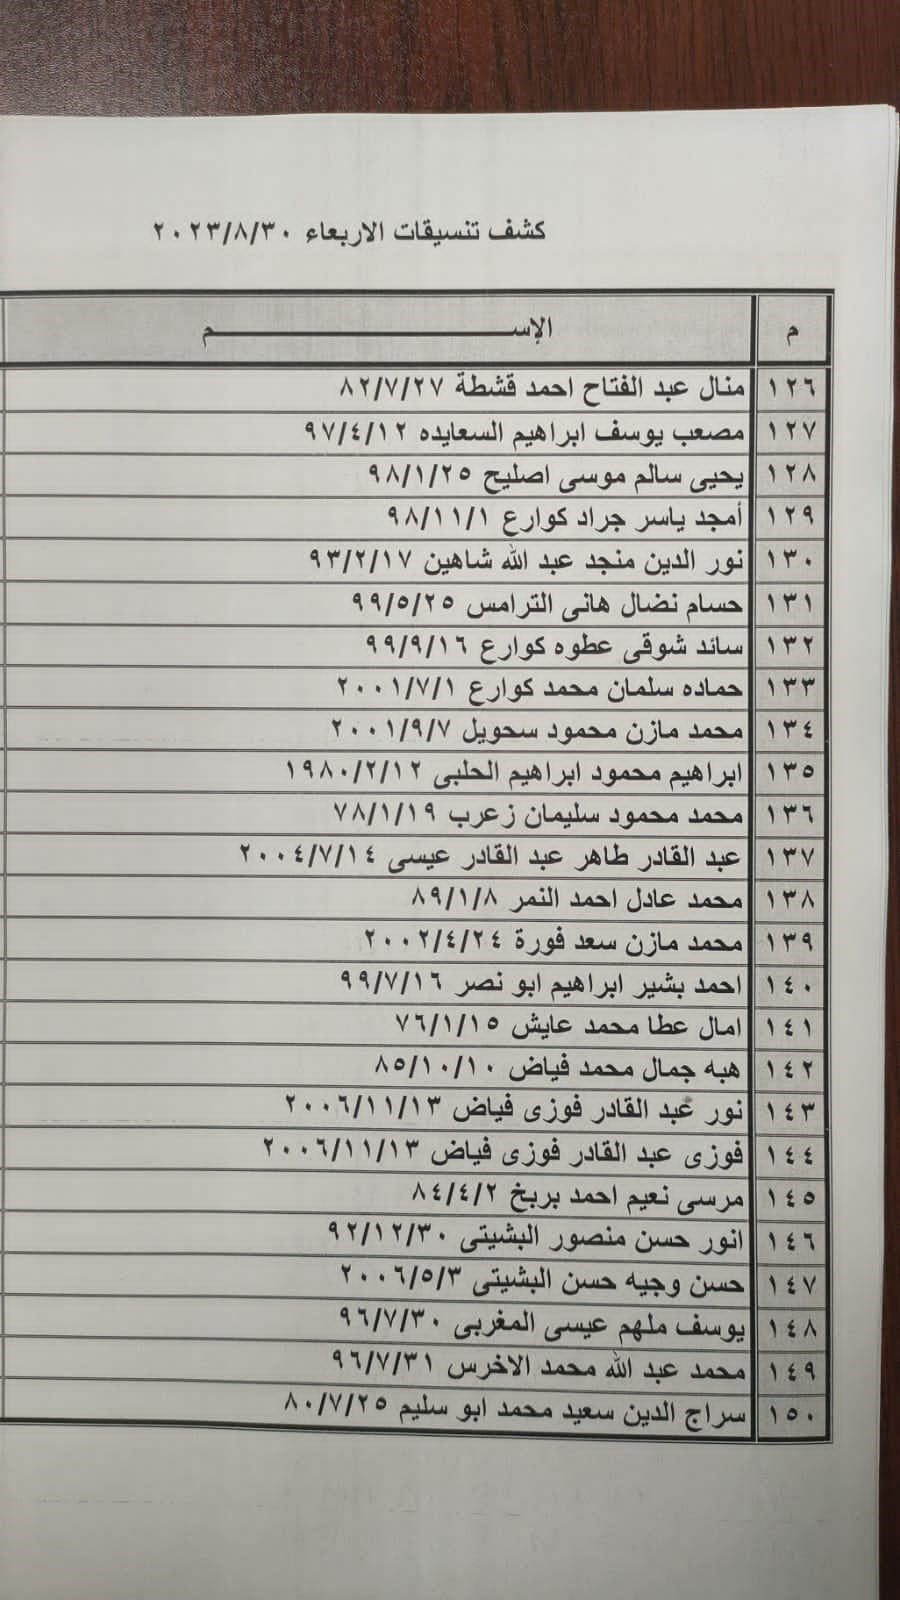 كشف تنسيقات الاربعاء ٢٠٢٣/٨/٣٠
م الإســـــم
١٢٦ منال عبد الفتاح احمد قشطة ٨٢/٧/٢٧
١٢٧ مصعب يوسف ابراهيم السعايده ٩٧/٤/١٢
١٢٨ يحيى سالم موسى اصليح ٩٨/١/٢٥
١٢٩ أمجد ياسر جراد كوارع ٩٨/١١/١
١٣٠ نور الدين منجد عبد الله شاهين ٩٣/٢/١٧
١٣١ حسام نضال هانى الترامس ٩٩/٥/٢٥
١٣٢ سائد شوقى عطوه كوارع ٩٩/٩/١٦
١٣٣ حماده سلمان محمد كوارع ٢٠٠١/٧/١
١٣٤ محمد مازن محمود سحويل ٢٠٠١/٩/٧
١٣٥ ابراهيم محمود ابراهيم الحلبى ١٩٨٠/٢/١٢
١٣٦ محمد محمود سليمان زعرب ٧٨/١/١٩
١٣٧ عبد القادر طاهر عبد القادر عيسى ٢٠٠٤/٧/١٤
١٣٨ محمد عادل احمد النمر ٨٩/١/٨
١٣٩ محمد مازن سعد فورة ٢٠٠٢/٤/٢٤
١٤٠ احمد بشير ابراهيم ابو نصر ٩٩/٧/١٦
١٤١ امال عطا محمد عايش ٧٦/١/١٥
١٤٢ هبه جمال محمد فياض ٨٥/١٠/١٠
١٤٣ نور عبد القادر فوزى فياض ٢٠٠٦/١١/١٣
١٤٤ فوزى عبد القادر فوزى فياض ٢٠٠٦/١١/١٣
١٤٥ مرسى نعيم احمد بربخ ٨٤/٤/٢
١٤٦ انور حسن منصور البشيتى ٩٢/١٢/٣٠
١٤٧ حسن وجيه حسن البشيتى ٢٠٠٦/٥/٣
١٤٨ يوسف ملهم عيسى المغربى ٩٦/٧/٣٠
١٤٩ محمد عبد الله محمد الاخرس ٩٦/٧/٣١
١٥٠ سراج الدين سعيد محمد ابو سليم ٨٠/٧/٢٥